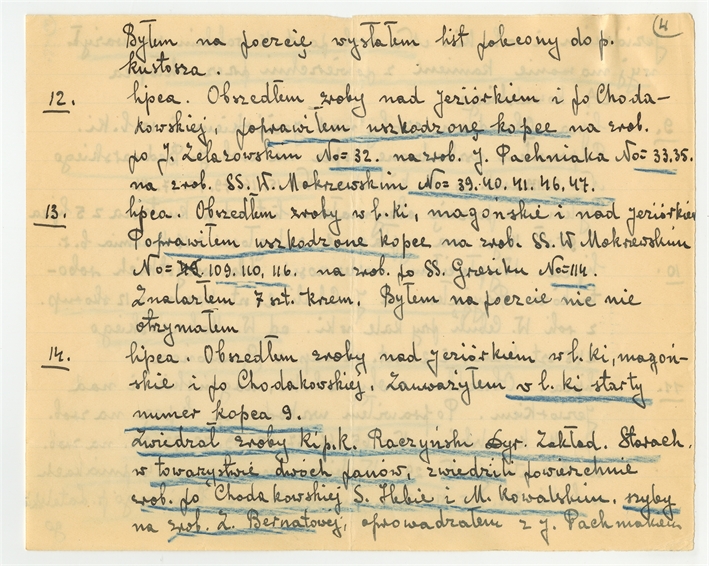 4
Byłem na poczcię wysłałem list polecony do p.
kustosza.
12. lipca. Obszedłem zroby nad Jeziórkiem i po Choda-
kowskiej, poprawiłem uszkodzonę kopce na zrob.
po J. Żelazowskim No= 32. na zrob. J. Pachniaka No= 33.35.
na zrob. SS. W. Mokrzewskim No= 39.40.41.46.47.
13. lipca. Obszedłem zroby w l. ki, magońskie i nad Jeziórkiem
Poprawiłem uszkodzone kopce na zrob. SS. W Mokrzewskim
No= 109.110, 116. na zrob. po SS. Gresiku No=114.
Znalazłem 7 szt. krzem. Byłem na poczcie nic nie
otrzymałem
14. lipca. Obszedłem zroby nad Jeziórkiem w l. ki, magoń-
skie i po Chodakowskiej. Zauważyłem w l. ki starty
numer kopca 9.
Zwiedzał zroby ki p.k. Raczyński Dyr. Zakład. Starach.
w towarzystwie dwóch panów, zwiedzili powierzchnie
zrob. po Chodakowskiej S. Hebie i M. Kowalskim, szyby
na zrob. Z. Bernatowej, oprowadzałem z J. Pachniakiem